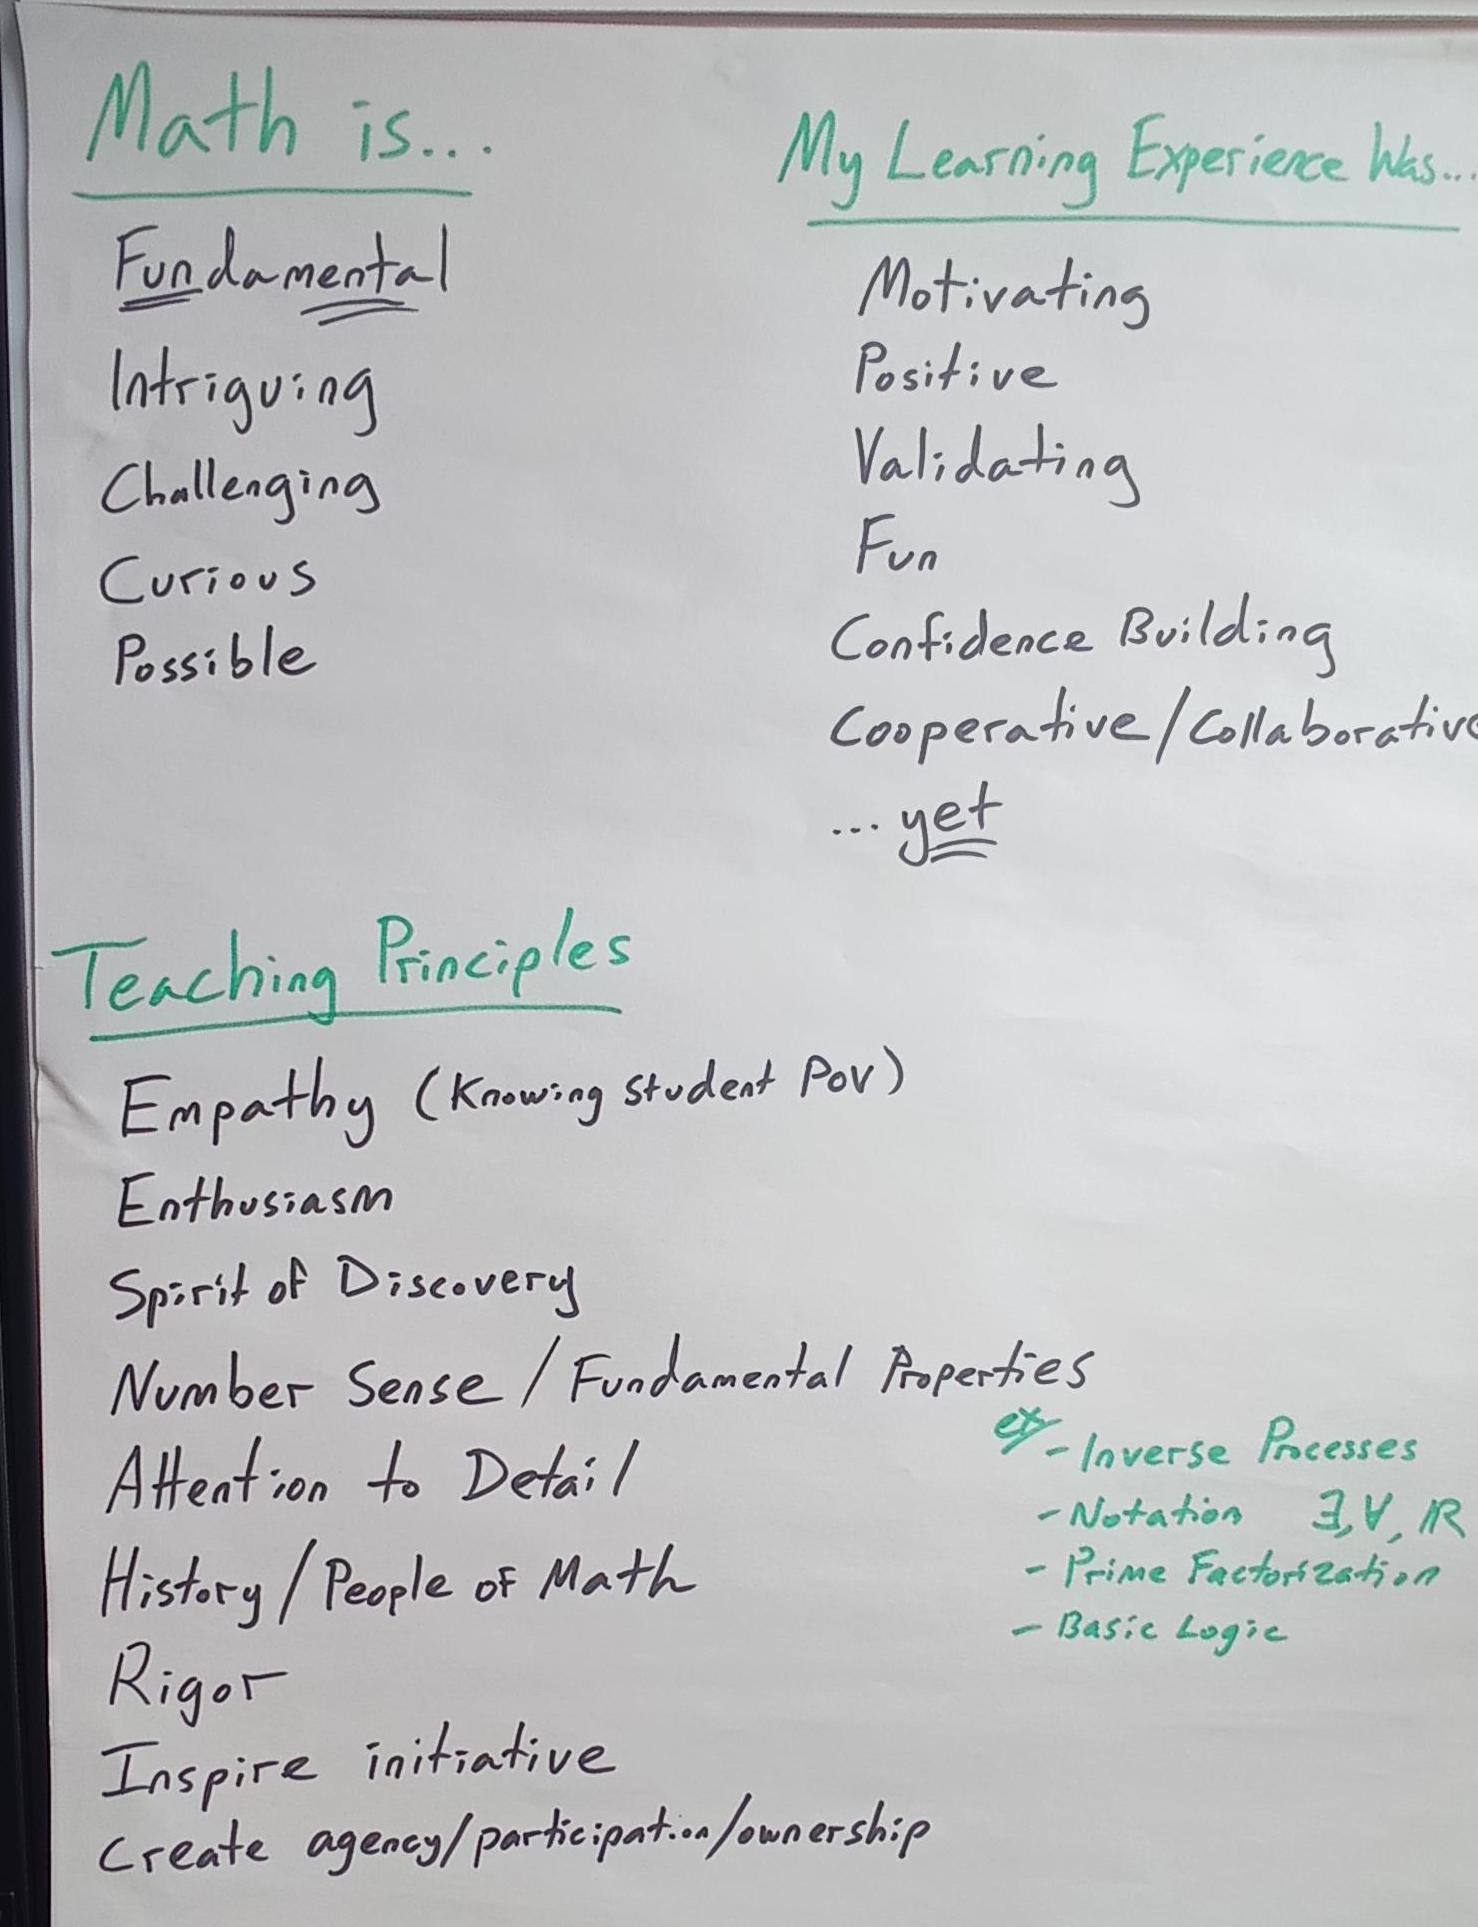 Math is...
Fundamental
Intriguing
Challenging
Curious
Possible
My Learning Experience Was...
Motivating
Positive
Validating
Fun
Confidence Building
Cooperative/Collaborative
... yet
Teaching Principles
Empathy (Knowing Student POV)
Enthusiasm
Spirit of Discovery
Number Sense / Fundamental Properties
ex - Inverse Processes
- Notation ∃, ∀, ℝ
- Prime Factorization
- Basic Logic
Attention to Detail
History / People of Math
Rigor
Inspire initiative
Create agency/participation/ownership